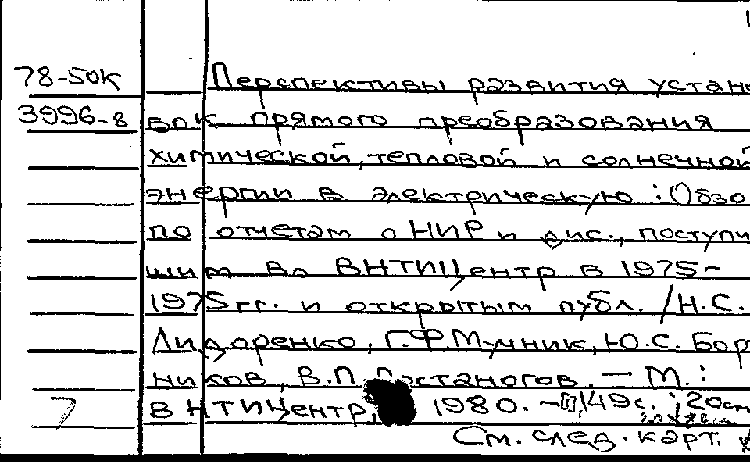 78-50К Перспективы развития устано
3996-8 вок прямого преобразования
химической, тепловой и солнечной
энергии в электрическую: Обзо
по отчетам о НИР и дис., поступи
шим во ВНТИЦентр в 1975-
1975 гг. и открытым публ. /Н.С.
Лидоренко, Г.Ф. Мучник, Ю.С. Бор
ников, В.П. Постаногов. — М.:
ВНТИЦентр, 1980. - 149 с.; 20см
См. след. карт.